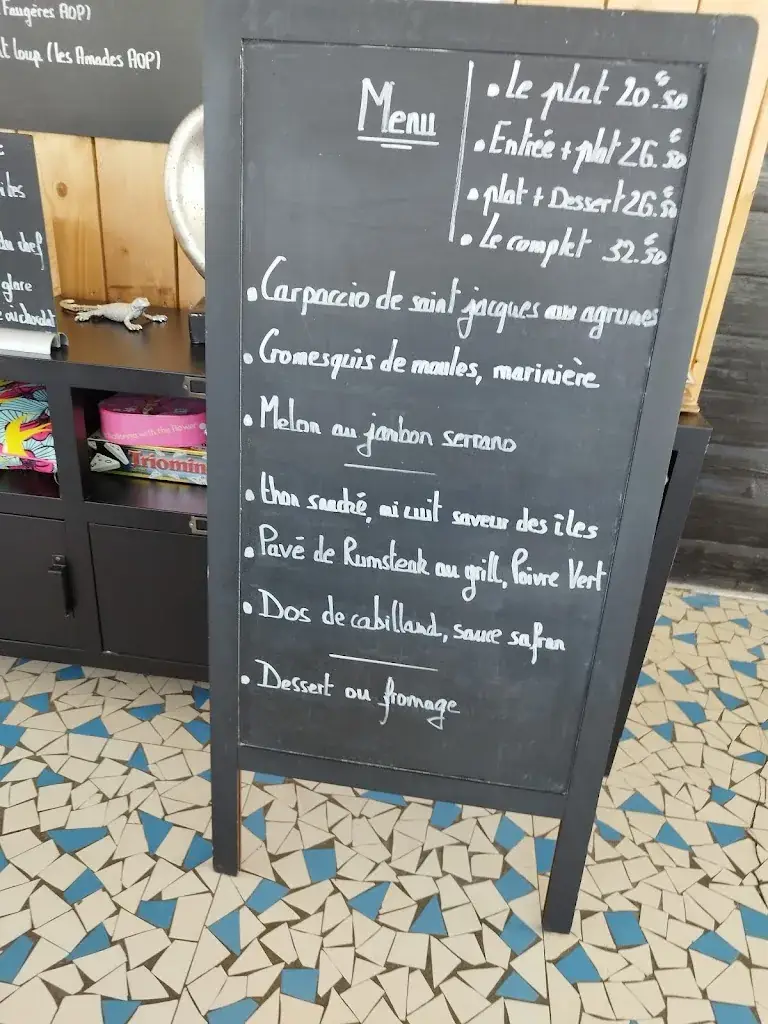 Faugères AOP)
t loup (les Amades AOP)
iles
du chef
glace
Menu
• Le plat 20.€50
• Entrée + plat 26.€50
• plat + Dessert 26.€50
• Le complet 32.€50
• Carpaccio de saint jacques aux agrumes
• Cromesquis de moules, marinière
• Melon au jambon serrano
• thon snacké, mi cuit saveur des îles
• Pavé de Rumsteak au grill, Poivre Vert
• Dos de cabillaud, sauce safran
• Dessert ou fromage
with the flower
Triomin